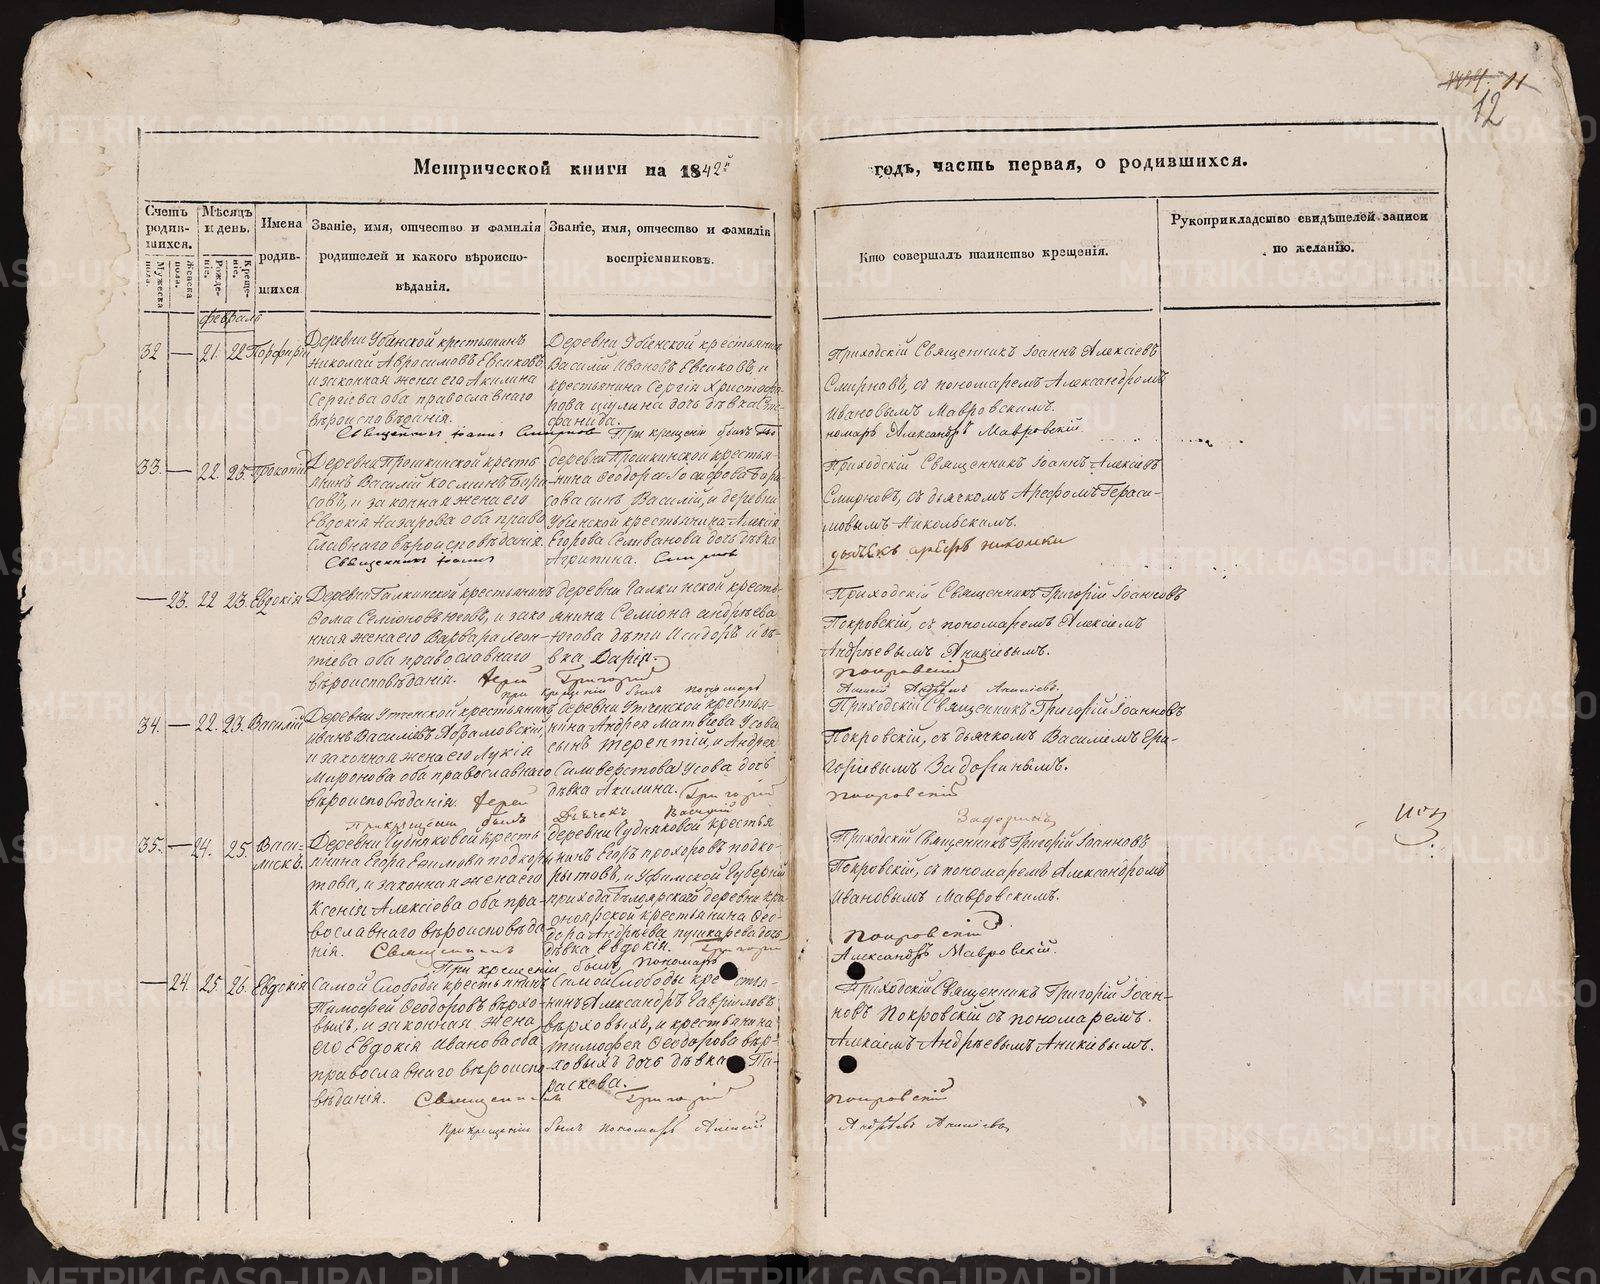 11
12
Метрической книги на 1842й годъ, часть первая, о родившихся.
Счетъ родив- шихся.
Мужеска пола.
Женска пола.
Мѣсяцъ и день.
Рожде- ніе.
Креще- ніе.
Имена
родив-
шихся
Званіе, имя, отчество и фамилія
родителей и какого вѣроиспо-
вѣданія.
Званіе, имя, отчество и фамилія
воспріемниковъ.
Кто совершалъ таинство крещенія.
Рукоприкладство свидѣтелей записи
по желанію.
февраль
32 — 21. 22 Порфирій
Деревни Убинской крестьянинъ
Николай Авросимовъ Евсиковъ
и законная жена его Акилина
Сергіева оба православнаго
вѣроисповѣданія.
Деревни Убинской крестьянинъ
Василій Ивановъ Евсиковъ, и
крестьянина Сергія Христофо-
рова дочь дѣвка Епи-
фанида.
Приходскій Священникъ Іоаннъ Алексіевъ
Смирновъ, съ пономаремъ Александромъ
Ивановымъ Мавровскимъ.
Священникъ Іоаннъ Смирновъ При крещеніи былъ По
номарь Александръ Мавровскій
33. — 22. 23. Прокопій
Деревни Прошкинской кресть
янинъ Василій Косминъ Бори
совъ, и законная жена его
Евдокія Назарова оба право
славнаго вѣроисповѣданія.
деревни Прошкинской крестья-
нина Феодора Іосифова Бори
сова сынъ Василій, и деревни
Убинской крестьянина Алексія
Егорова Селиванова дочь дѣвка
Агрипина.
Приходскій Священникъ Іоаннъ Алексіевъ
Смирновъ, съ дьячкомъ Арефомъ Гераси-
мовымъ Никольскимъ.
Священникъ Іоаннъ Смирновъ
дьячекъ Арефъ
— 23. 22 23. Евдокія
Деревни Галкинской крестьянинъ
Фома Семіоновъ Юговъ, и зако
нная жена его Варвара Леон-
тіева оба православнаго
вѣроисповѣданія.
деревни Галкинской кресть-
янина Семіона Андрѣева
Югова дѣти Исидоръ и дѣ-
вка Дарія.
Приходскій Священникъ Григорій Іоанновъ
Покровскій, съ пономаремъ Алексіемъ
Андрѣевымъ Аникіевымъ.
Іерей Григорій Покровскій
При крещеніи былъ пономарь
Алексій Андрѣевъ Аникіевъ.
34. — 22. 23. Василій
Деревни Утченской крестьянинъ
Иванъ Василіевъ Абрамовскій,
и законная жена его Лукія
Миронова оба православнаго
вѣроисповѣданія.
деревни Утченской крестья-
нина Андрея Матвіева Усова
сынъ Терентій, и Андрея
Силиверстова Усова дочь
дѣвка Акилина.
Приходскій Священникъ Григорій Іоанновъ
Покровскій, съ дьячкомъ Василіемъ Гри-
горіевымъ Задоринымъ.
Іерей Григорій Покровскій
При крещеніи былъ Дьячекъ Василій Задоринъ
35. — 24. 25. Васи-
лискъ.
Деревни Чудняковой кресть
янина Егора Ефимова Подкоры
това, и законная жена его
Ксенія Алексіева оба пра-
вославнаго вѣроисповѣда
нія.
деревни Чудняковой крестья
нинъ Егоръ Прохоровъ Подко-
рытовъ, и Уфимской Губерніи
прихода Бѣлоярскаго деревни Кра
сноярской крестьянина Фео-
дора Андрѣева Пушкарева дочь
дѣвка Евдокія.
Приходскій Священникъ Григорій Іоанновъ
Покровскій, съ пономаремъ Александромъ
Ивановымъ Мавровскимъ.
Священникъ Григорій Покровскій
При крещеніи былъ пономарь
Александръ Мавровскій.
— 24. 25. 26. Евдокія
Самой Слободы крестьянинъ
Тимофей Феодоровъ Верхо-
выхъ, и законная жена
его Евдокія Иванова оба
православнаго вѣроиспо-
вѣданія.
Самой Слободы крестья-
нинъ Александръ Гавриловъ
Верховыхъ, и крестьянина
Тимофея Феодорова Вер-
ховыхъ дочь дѣвка Па-
раскева.
Приходскій Священникъ Григорій Іоан-
новъ Покровскій съ пономаремъ
Алексіемъ Андрѣевымъ Аникіевымъ.
Священникъ Григорій Покровскій
При крещеніи былъ пономарь Алексій
Андрѣевъ Аникіевъ
METRIKI.GASO-URAL.RU